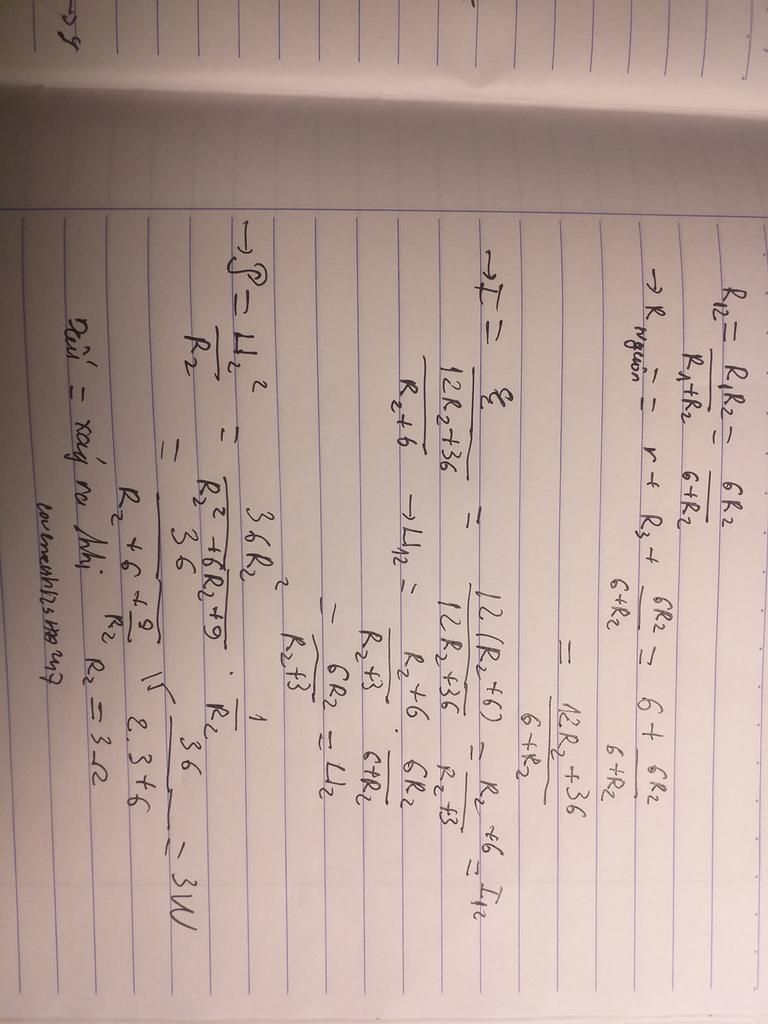 R₁₂ = R₁R₂/(R₁+R₂) = 6R₂/(6+R₂)
→ R nguồn = = r + R₃ + 6R₂/(6+R₂) = 6 + 6R₂/(6+R₂)
= (12R₂+36)/(6+R₂)
→ I = ξ/((12R₂+36)/(R₂+6)) = 12(R₂+6)/(12R₂+36) = (R₂+6)/(R₂+3) = I₁₂
→ U₁₂ = (R₂+6)/(R₂+3) . 6R₂/(6+R₂)
= 6R₂/(R₂+3) = U₂
→ P = U₂²/R₂ = 36R₂²/(R₂²+6R₂+9) . 1/R₂
= 36/(R₂ + 6 + 9/R₂) ≤ 36/(2.3+6) = 3W
Dấu = xảy ra khi R₂ = 3Ω